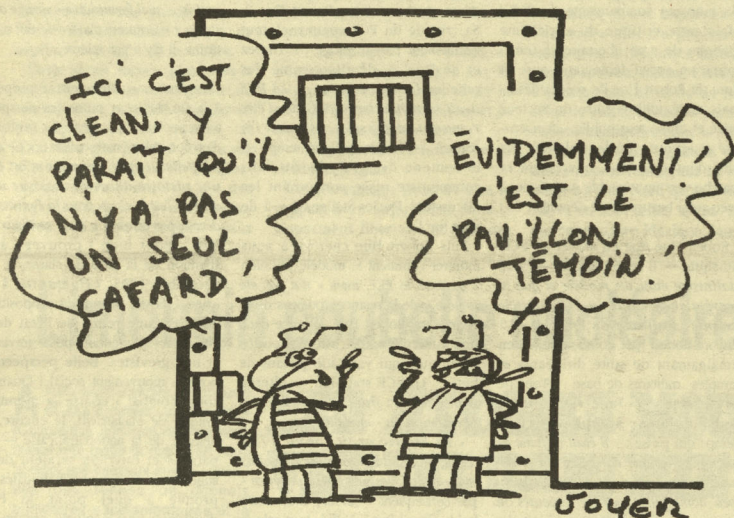 Ici C'EST
CLEAN, Y
PARAÎT QU'iL
N'Y A PAS
UN SEUL
CAFARD,
ÉViDEMMENT,
C'EST LE
PAViLLON
TÉMOiN.
JOYER